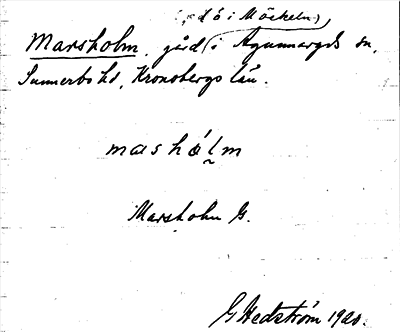 (ö i Möckeln)
Marsholm, gård i Agunnaryds sn,
Sunnerbo hd, Kronobergs län.
masholm
Marsholm G.
G Hedström 1920.